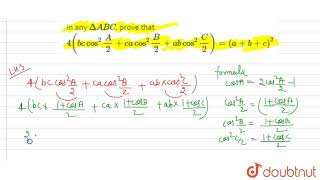 in any ΔABC, prove that
4(bc cos² A/2 + ca cos² B/2 + ab cos² C/2) = (a + b + c)²
LHS
4(bc cos²A/2 + ca cos²B/2 + ab × cos²C/2)
4(bc × (1+cosA)/2 + ca × (1+cosB)/2 + ab × (1+cosC)/2)
2
formula
cosA = 2cos²A/2 - 1
cos²A/2 = (1+cosA/2)
cos²B/2 = 1+cosB/2
cos²C/2 = 1+cosC/2
doubtnut